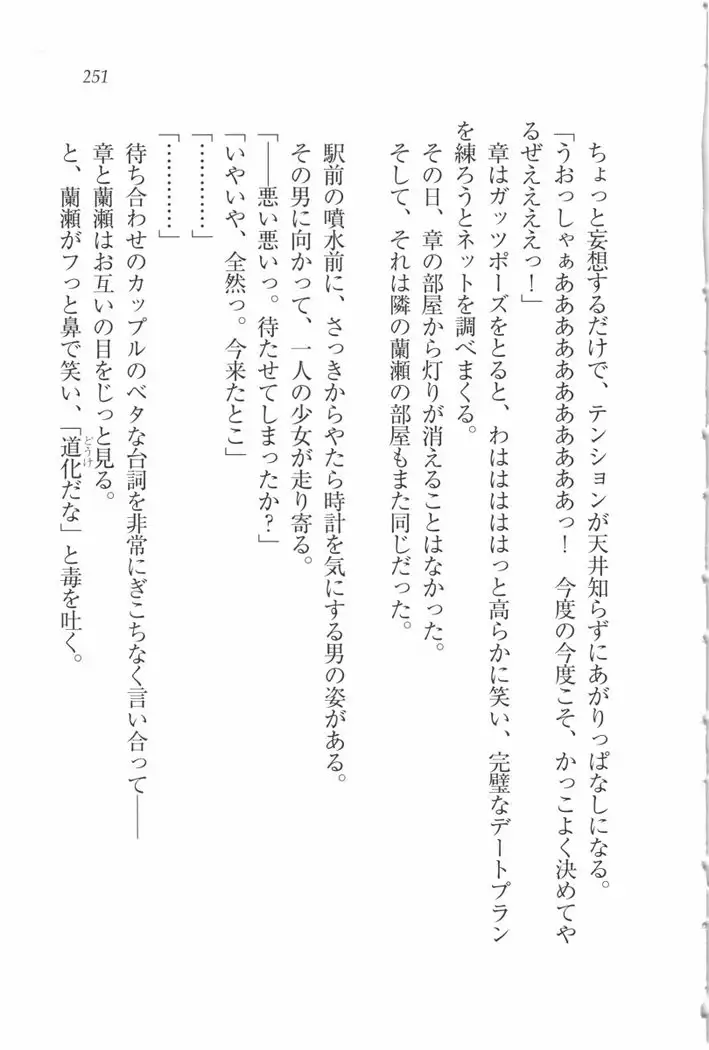 251
ちょっと妄想するだけで、テンションが天井知らずにあがりっぱなしになる。
「うおっしゃぁあああああああああああっ！　今度の今度こそ、かっこよく決めてや
るぜえええええっ！」
章はガッツポーズをとると、わはははははっと高らかに笑い、完璧なデートプラン
を練ろうとネットを調べまくる。
その日、章の部屋から灯りが消えることはなかった。
そして、それは隣の蘭瀬の部屋もまた同じだった。
駅前の噴水前に、さっきからやたら時計を気にする男の姿がある。
その男に向かって、一人の少女が走り寄る。
「――悪い悪いっ。待たせてしまったか？」
「いやいや、全然っ。今来たとこ」
「…………」
「…………」
待ち合わせのカップルのベタな台詞を非常にぎこちなく言い合って――
章と蘭瀬はお互いの目をじっと見る。
と、蘭瀬がフっと鼻で笑い、「道化だな」と毒を吐く。
どうけ